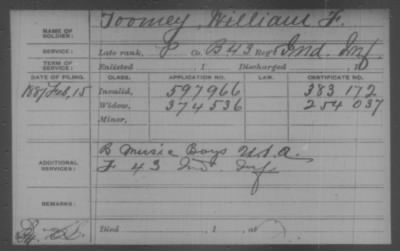 NAME OF SOLDIER: Toomey, William F.
SERVICE: Late rank, P Co. B 43 Reg't Ind. Inf
TERM OF SERVICE: Enlisted , 1 Discharged , 1
DATE OF FILING. CLASS. APPLICATION NO. LAW. CERTIFICATE NO.
1887 Feb, 15 Invalid, 597966 383 172
Widow, 374536 254 037
Minor,
ADDITIONAL SERVICES: B Music Boys U.S.A.
F 43 Ind. Inf
REMARKS:
Died , 1 , at